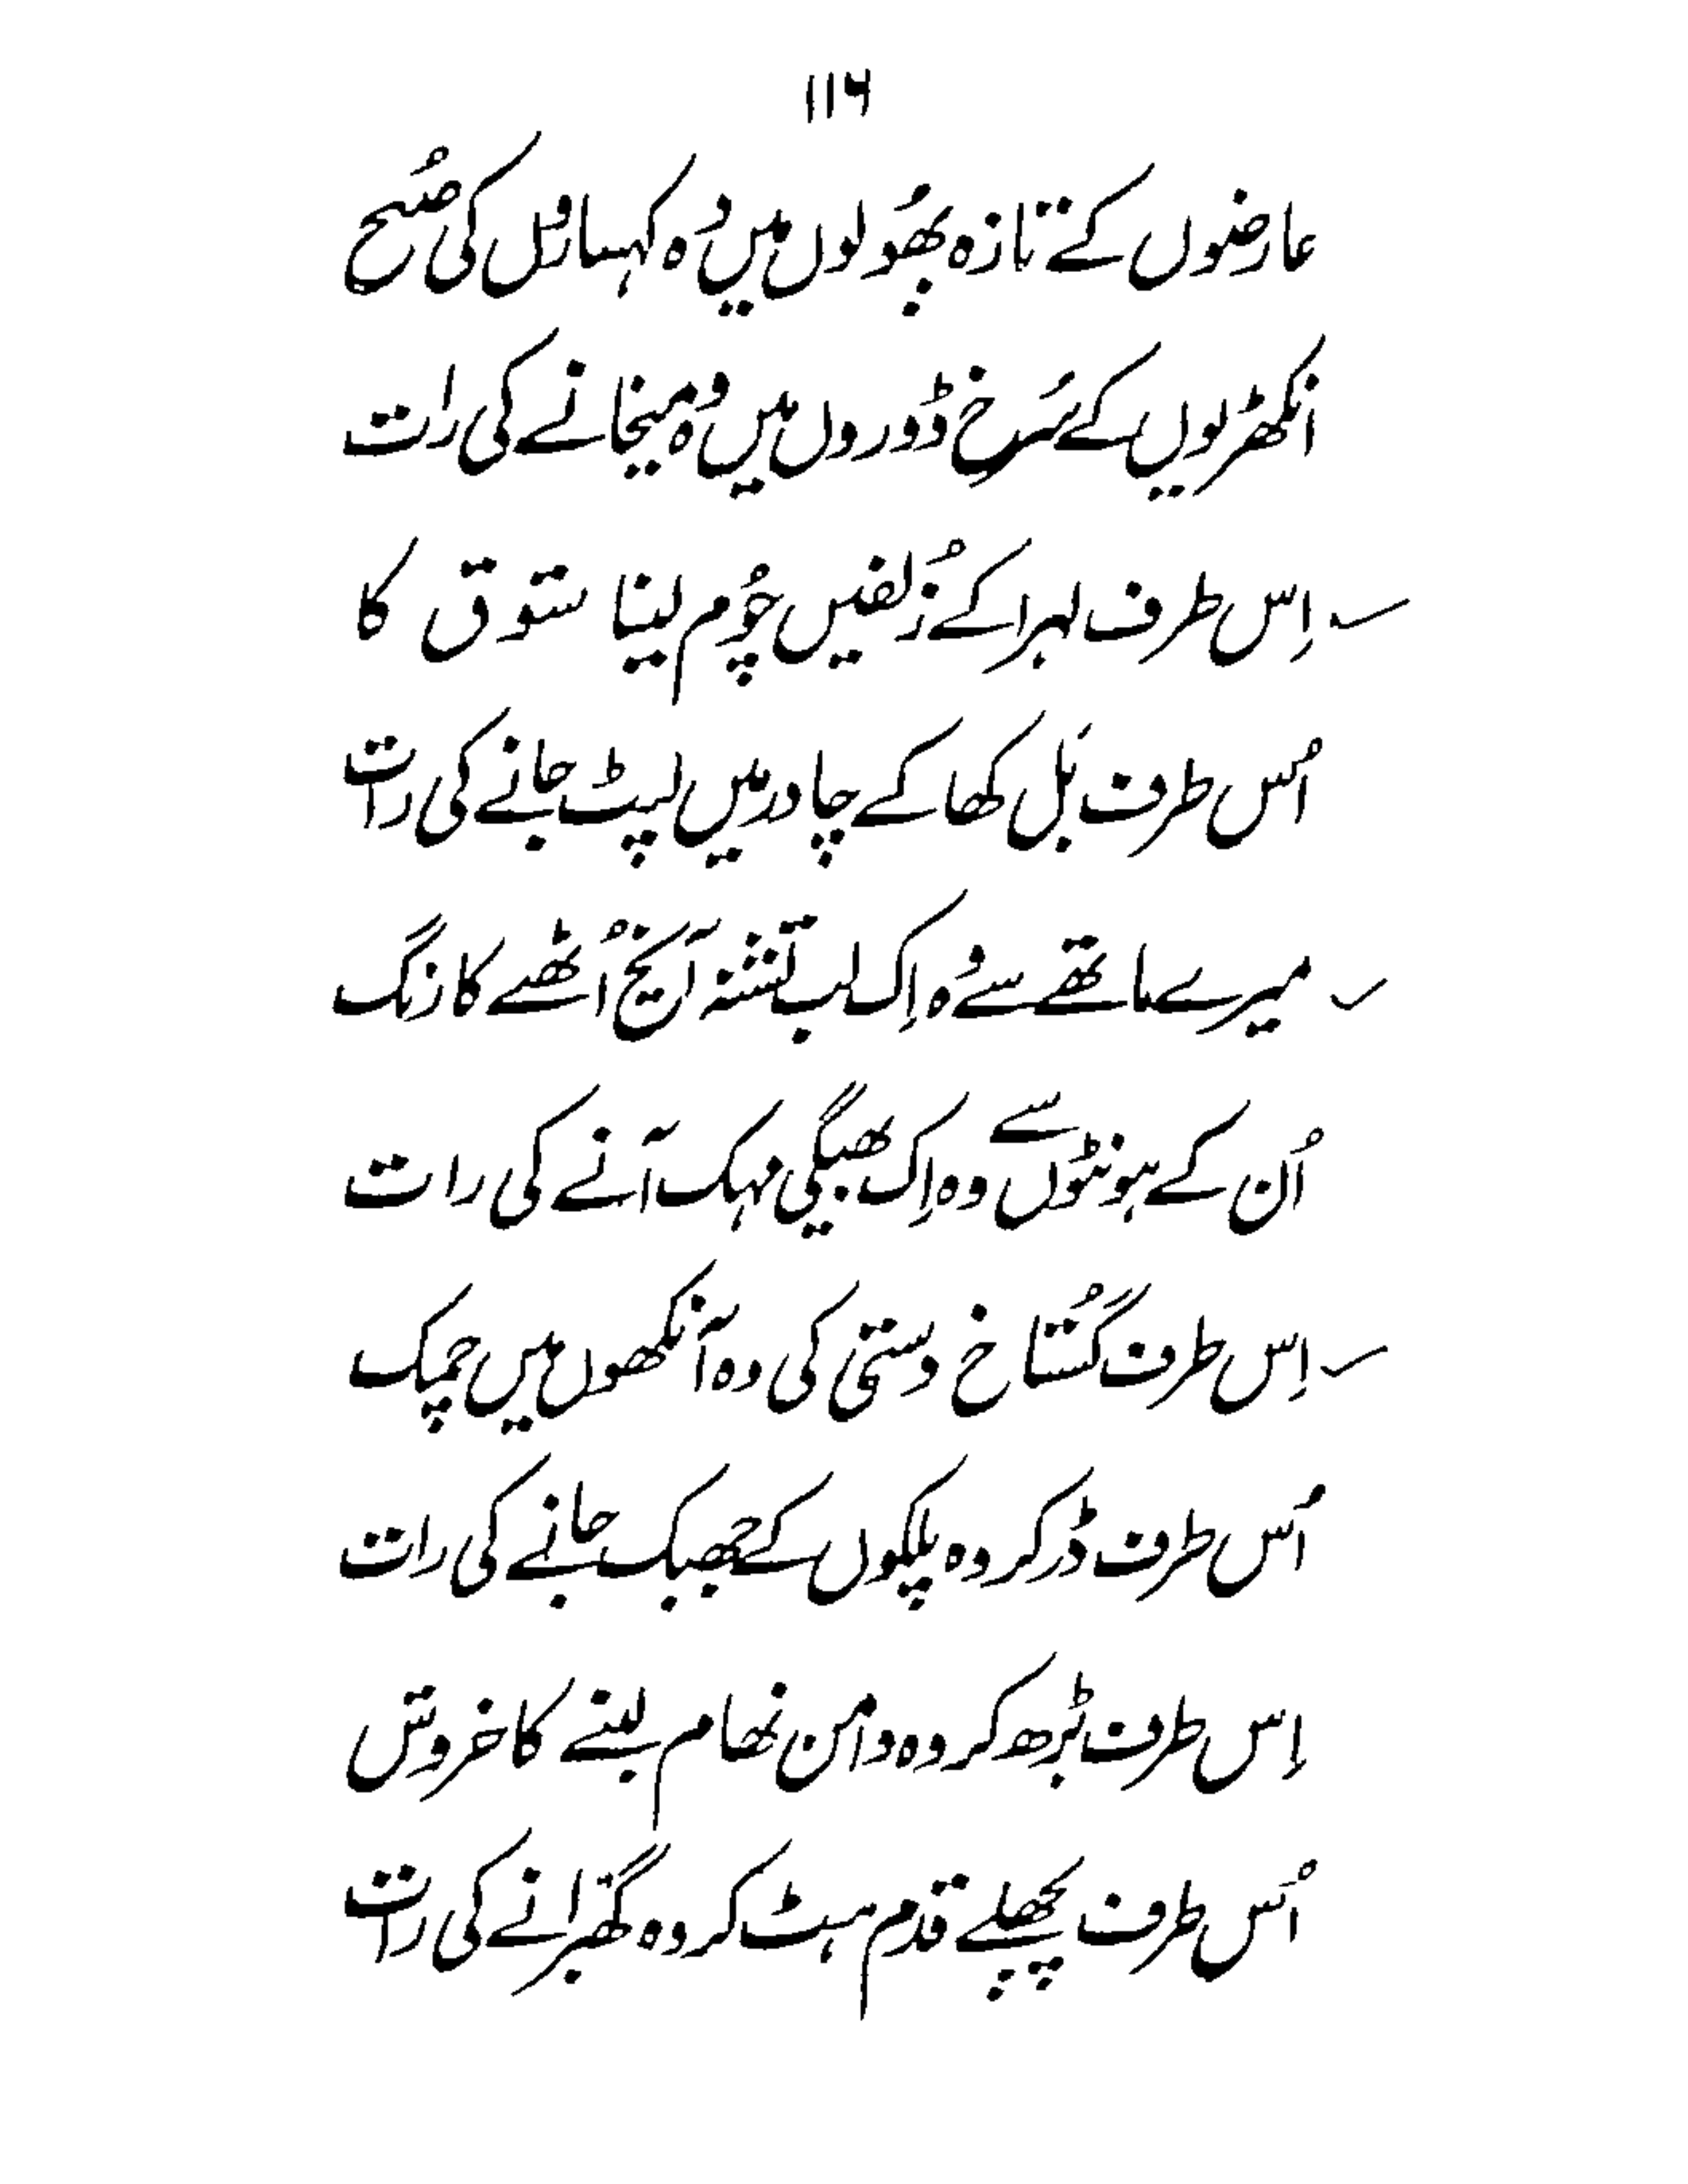 ۱۱۶
عارضوں کے تازہ پھُولوں میں وُہ کہساروں کی صُبح
انکھڑیوں کے سُرخ ڈوروں میں وُہ میخانے کی رات
اِس طرف لہرا کے زُلفیں چُوم لینا شوق کا
اُس طرف بَل کھا کے چادر میں لپٹ جانے کی رات
میرے ماتھے سے وُہ اِک لب تشنہ آنچ اُٹھنے کا رنگ
اُن کے ہونٹوں سے وہ اِک بھیگی مہک آنے کی رات
اِس طرف گُستاخ دستی کی وہ آنکھوں میں چمک
اُس طرف ڈر کر وہ پلکوں کے جھپک جانے کی رات
اِس طرف بڑھ کر وہ دامن تھام لینے کا خروش
اُس طرف پچھلے قدم ہٹ کر وہ گھبرانے کی رات